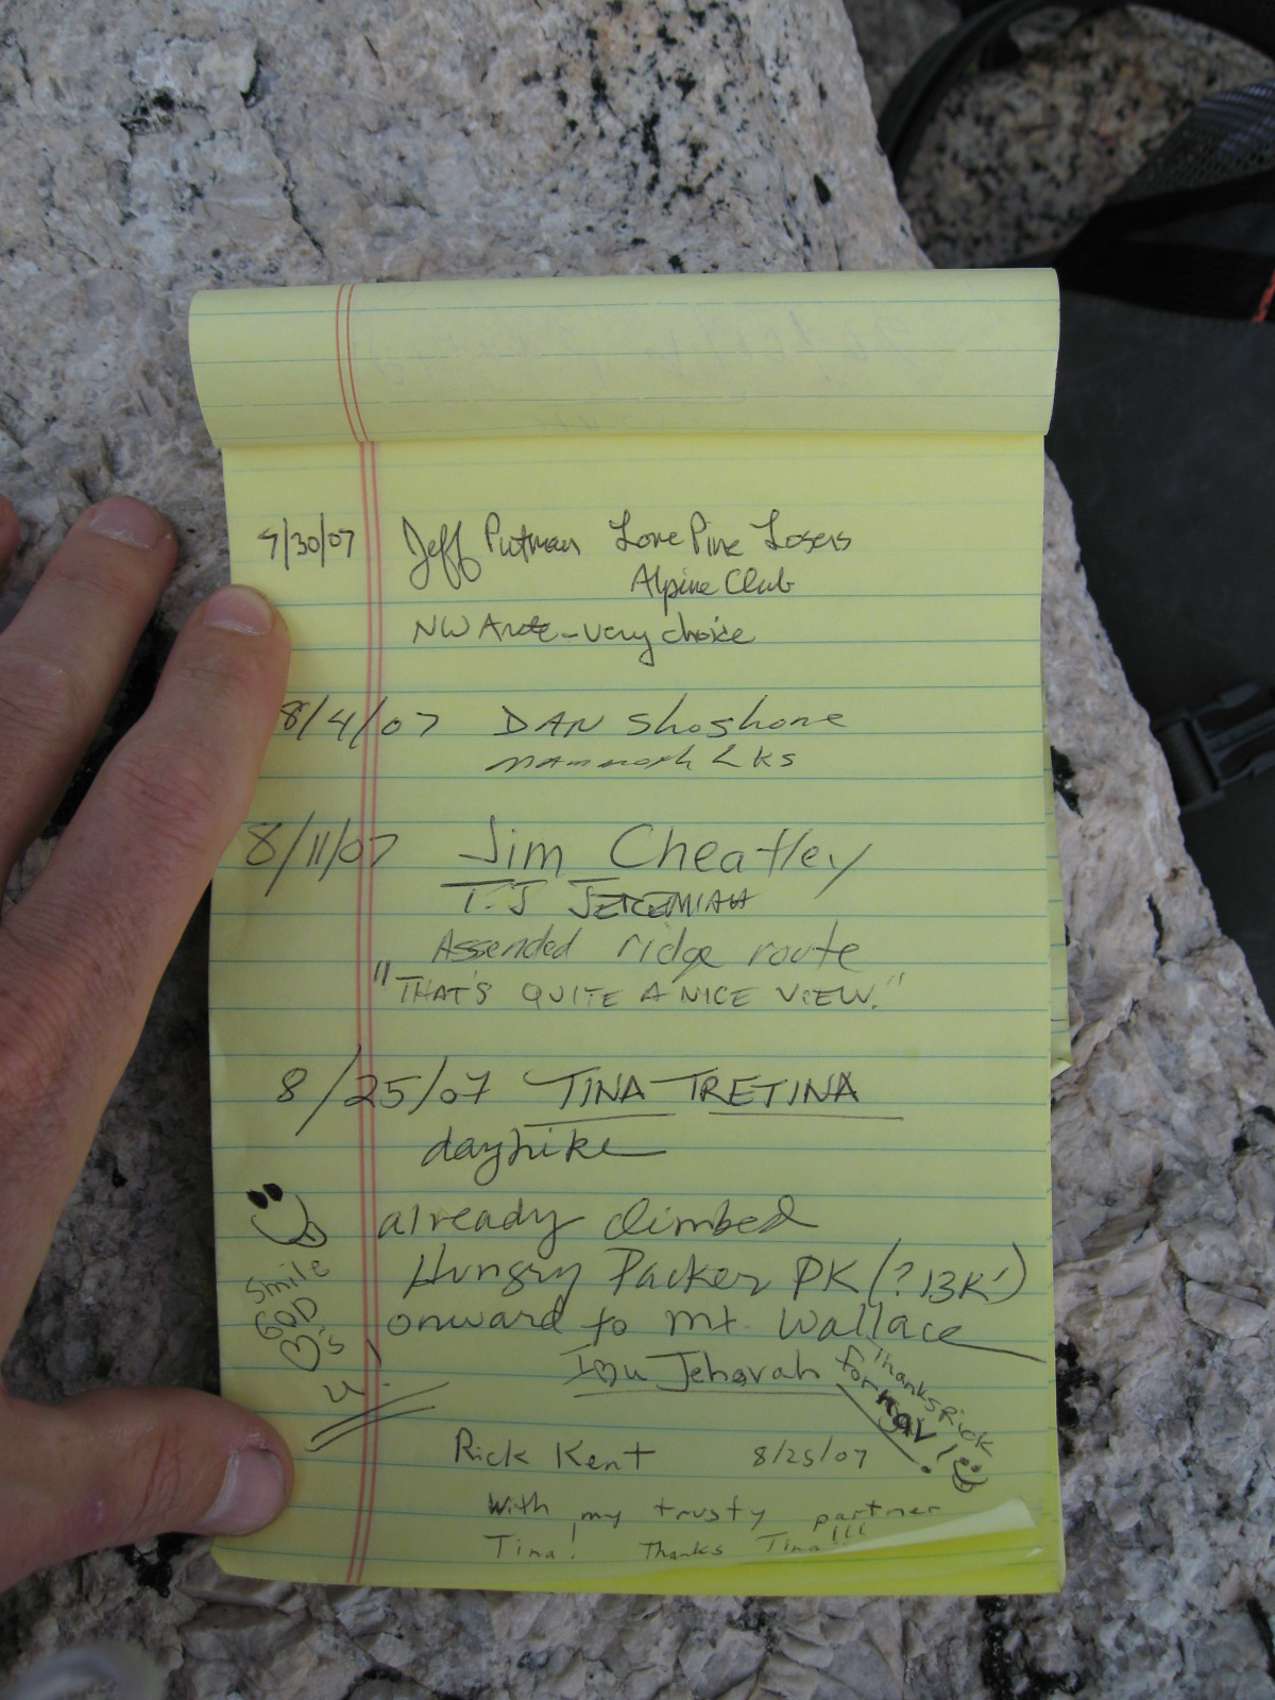 7/30/07 Jeff Putman Lone Pine Losers
Alpine Club
NW Arete - very choice
8/4/07 DAN Shoshone
mammoth LKS
8/11/07 Jim Cheatley
T.J JEREMIAH
Assended ridge route
"THAT'S QUITE A NICE VIEW."
8/25/07 TINA TRETINA
dayhike
already climbed
Hungry Packer PK (?13K')
onward to mt. Wallace
I♡u Jehovah
Smile
GOD
♡'s
u!
Thanks Rick
for
Rick Kent 8/25/07
With my trusty partner
Tina! Thanks Tina!!!